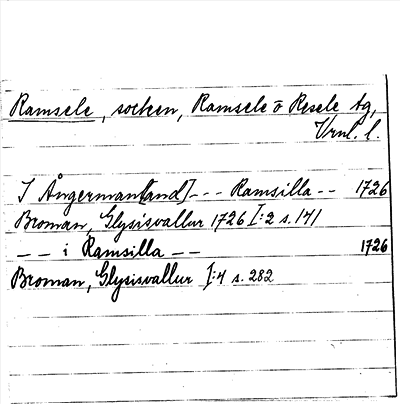 Ramsele, socken, Ramsele o Resele tg,
Vrnl. l.
I Ångerman[land] - - - Ramsilla - - 1726
Broman, Glysisvallur 1726 I:2 s. 141
- - i Ramsilla - - 1726
Broman, Glysisvallur I:4 s. 282